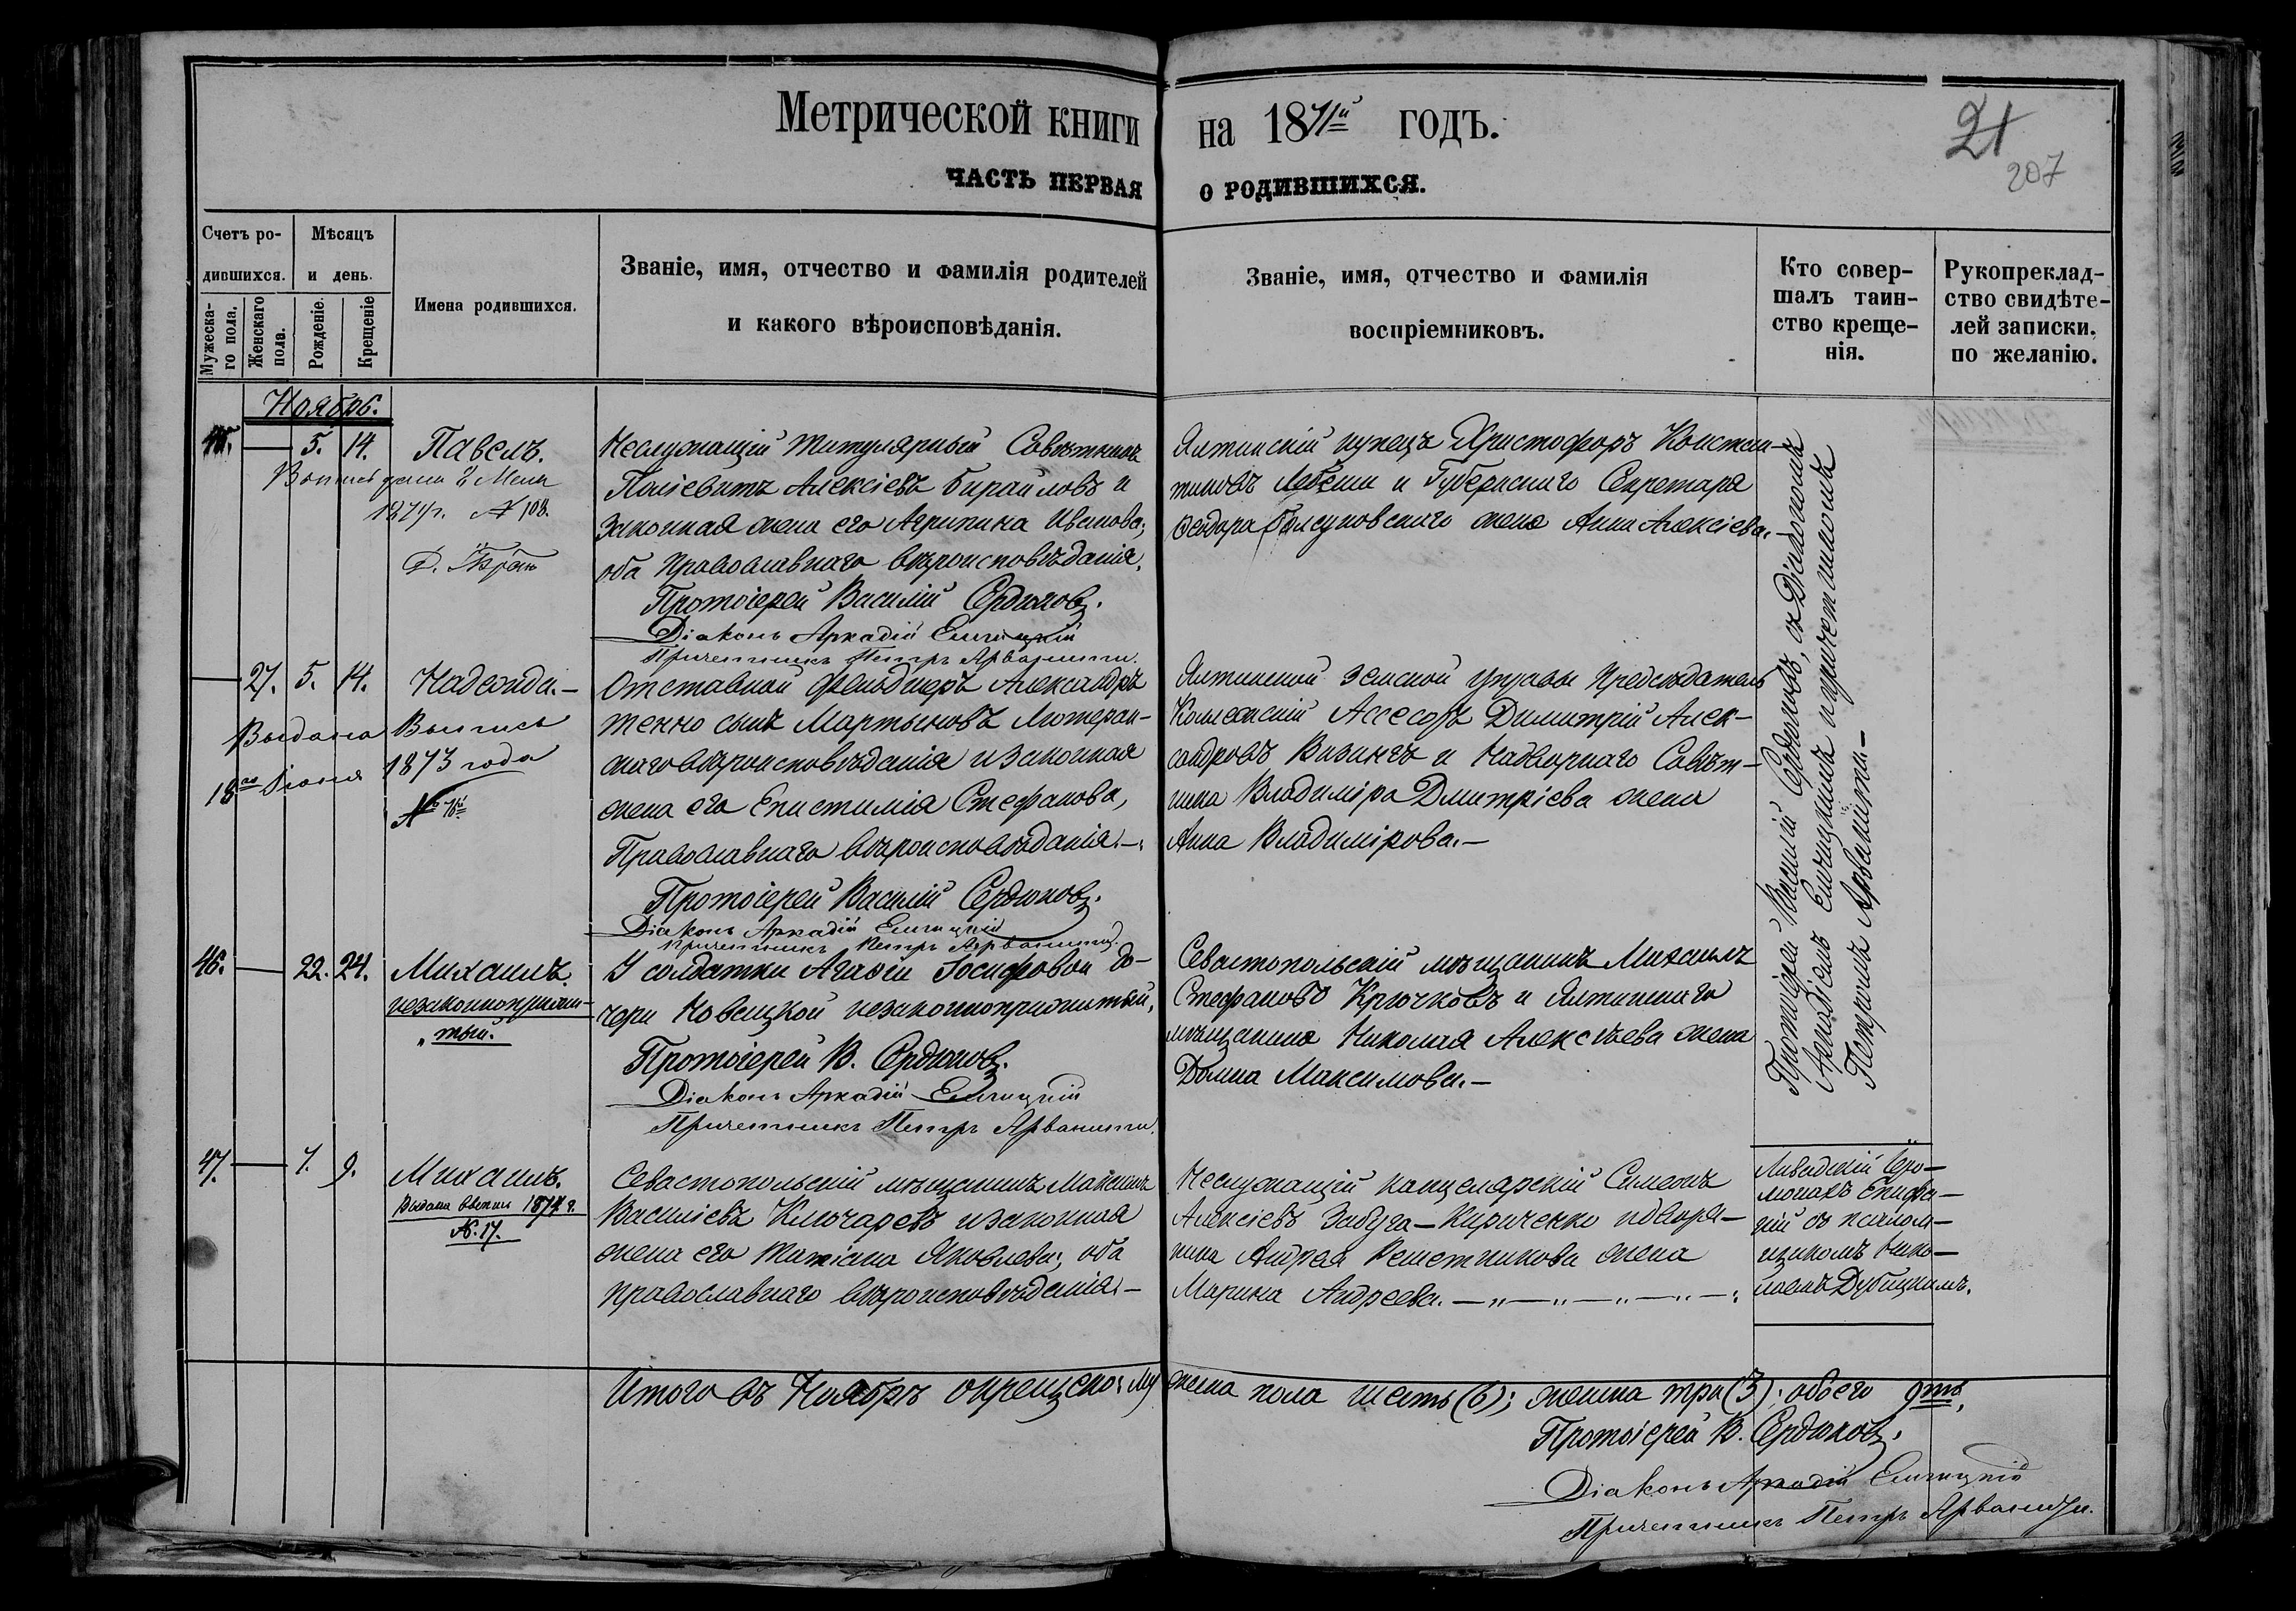 Метрической книги на 1871й годъ.
21
207
ЧАСТЬ ПЕРВАЯ О РОДИВШИХСЯ.
Счетъ родившихся.
Мужескаго пола.
Женскаго пола.
Мѣсяцъ и день.
Рожденіе.
Крещеніе
Имена родившихся.
Званіе, имя, отчество и фамилія родителей
и какого вѣроисповѣданія.
Званіе, имя, отчество и фамилія
воспріемниковъ.
Кто совер-
шалъ таин-
ство креще-
нія.
Рукопреклад-
ство свидѣте-
лей записки.
по желанію.
Ноябрь.
45. — 5. 14. Павелъ.
1874г. № 108.
Неслужащій Титулярный Совѣтникъ
Алексіевъ Бирайловъ и
законная жена его Агрипина Иванова;
оба Православнаго вѣроисповѣданія.
Протоіерей Василій Сердюковъ.
Діаконъ Аркадій Елчицкій
Причетникъ Петръ Арванити.
Ялтинскій купецъ Христофоръ Констан-
тиновъ и Губернскаго Секретаря
Ѳеодора жена Анна Алексіева.
— 27. 5. 14. Надежда.—
Выдана Выпись
18го Іюня 1873 года
№
Отставной Фельдшеръ Александръ
сынъ Мартыновъ Лютеран-
скаго вѣроисповѣданія и законная
жена его Епистимія Стефанова,
Православнаго вѣроисповѣданія.—
Протоіерей Василій Сердюковъ.
Діаконъ Аркадій Елчицкій
Причетникъ Петръ Арванити.
Ялтинской Земской Управы Предсѣдатель
Коллежскій Ассесоръ Димитрій Алек-
сандровъ и Надворнаго Совѣт-
ника Владиміра Дмитріева жена
Анна Владимірова.—
46. — 22. 24. Михаилъ.
незаконноприжи-
тый.
У солдатки Агафіи Іосифовой до-
чери Новицкой незаконноприжитый,
Протоіерей В. Сердюковъ.
Діаконъ Аркадій Елчицкій
Причетникъ Петръ Арванити.
Севастопольскій мѣщанинъ Михаилъ
Стефановъ Крючковъ и Ялтинскаго
мѣщанина Николая Алексѣева жена
Домна Максимова.—
Протоіерей Василій Сердюковъ, съ Діакономъ
Аркадіемъ Елчицкимъ и причетникомъ
Петромъ Арванити.—
47. — 7. 9. Михаилъ.
Выдана выпись 1874 г.
№. 17.
Севастопольскій мѣщанинъ Максимъ
Василіевъ Ключаревъ и законная
жена его Татіана Яковлева; оба
Православнаго вѣроисповѣданія.—
Неслужащій канцелярскій Симеонъ
Алексіевъ Забуга-Кириченко и дворя-
нина Андрея Решетникова жена
Марина Андреева.—
Ливадскій Іеро-
монахъ Епифа-
ній съ псалом-
щикомъ Нико-
лаемъ Дубицкимъ.
Итого въ Ноябрѣ окрещено: мужеска пола шесть (6); женска три (3); обоего 9ть.
Протоіерей В. Сердюковъ.
Діаконъ Аркадій Елчицкій
Причетникъ Петръ Арванити.